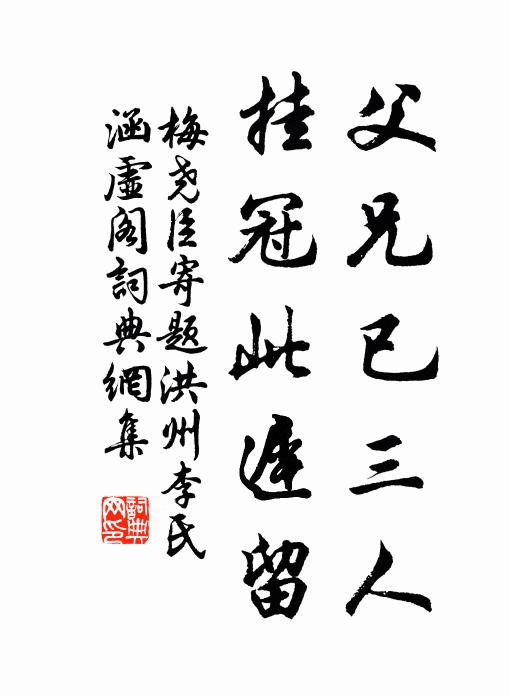 父兄已三人
挂冠此遲留
梅堯臣寄題洪州李氏
涵虛閣詞典網集
詞典網印